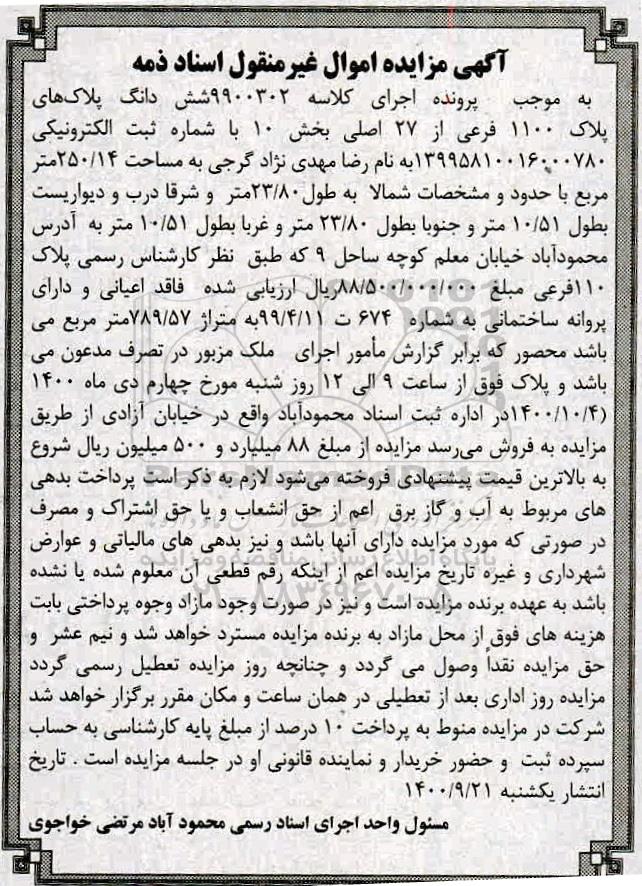 آگهی مزایده اموال غیرمنقول اسناد ذمه
به موجب پرونده اجرای کلاسه ۹۹۰۰۳۰۲شش دانگ پلاک‌های
پلاک ۱۱۰۰ فرعی از ۲۷ اصلی بخش ۱۰ با شماره ثبت الکترونیکی
۱۳۹۹۵۸۱۰۰۱۶۰۰۰۷۸۰به نام رضا مهدی نژاد گرجی به مساحت ۲۵۰/۱۴متر
مربع با حدود و مشخصات شمالا به طول۲۳/۸۰متر و شرقا درب و دیواریست
بطول ۱۰/۵۱ متر و جنوبا بطول ۲۳/۸۰ متر و غربا بطول ۱۰/۵۱ متر به آدرس
محمودآباد خیابان معلم کوچه ساحل ۹ که طبق نظر کارشناس رسمی پلاک
۱۱۰فرعی مبلغ ۸۸/۵۰۰/۰۰۰/۰۰۰ریال ارزیابی شده فاقد اعیانی و دارای
پروانه ساختمانی به شماره ۶۷۴ ت ۹۹/۴/۱۱به متراژ ۷۸۹/۵۷متر مربع می
باشد محصور که برابر گزارش مأمور اجرای ملک مزبور در تصرف مدعون می
باشد و پلاک فوق از ساعت ۹ الی ۱۲ روز شنبه مورخ چهارم دی ماه ۱۴۰۰
(۱۴۰۰/۱۰/۴در اداره ثبت اسناد محمودآباد واقع در خیابان آزادی از طریق
مزایده به فروش می‌رسد مزایده از مبلغ ۸۸ میلیارد و ۵۰۰ میلیون ریال شروع
به بالاترین قیمت پیشنهادی فروخته می‌شود لازم به ذکر است پرداخت بدهی
های مربوط به آب و گاز برق اعم از حق انشعاب و یا حق اشتراک و مصرف
در صورتی که مورد مزایده دارای آنها باشد و نیز بدهی های مالیاتی و عوارض
شهرداری و غیره تاریخ مزایده اعم از اینکه رقم قطعی آن معلوم شده یا نشده
باشد به عهده برنده مزایده است و نیز در صورت وجود مازاد وجوه پرداختی بابت
هزینه های فوق از محل مازاد به برنده مزایده مسترد خواهد شد و نیم عشر و
حق مزایده نقداً وصول می گردد و چنانچه روز مزایده تعطیل رسمی گردد
مزایده روز اداری بعد از تعطیلی در همان ساعت و مکان مقرر برگزار خواهد شد
شرکت در مزایده منوط به پرداخت ۱۰ درصد از مبلغ پایه کارشناسی به حساب
سپرده ثبت و حضور خریدار و نماینده قانونی او در جلسه مزایده است . تاریخ
انتشار یکشنبه ۱۴۰۰/۹/۲۱
مسئول واحد اجرای اسناد رسمی محمود آباد مرتضی خواجوی